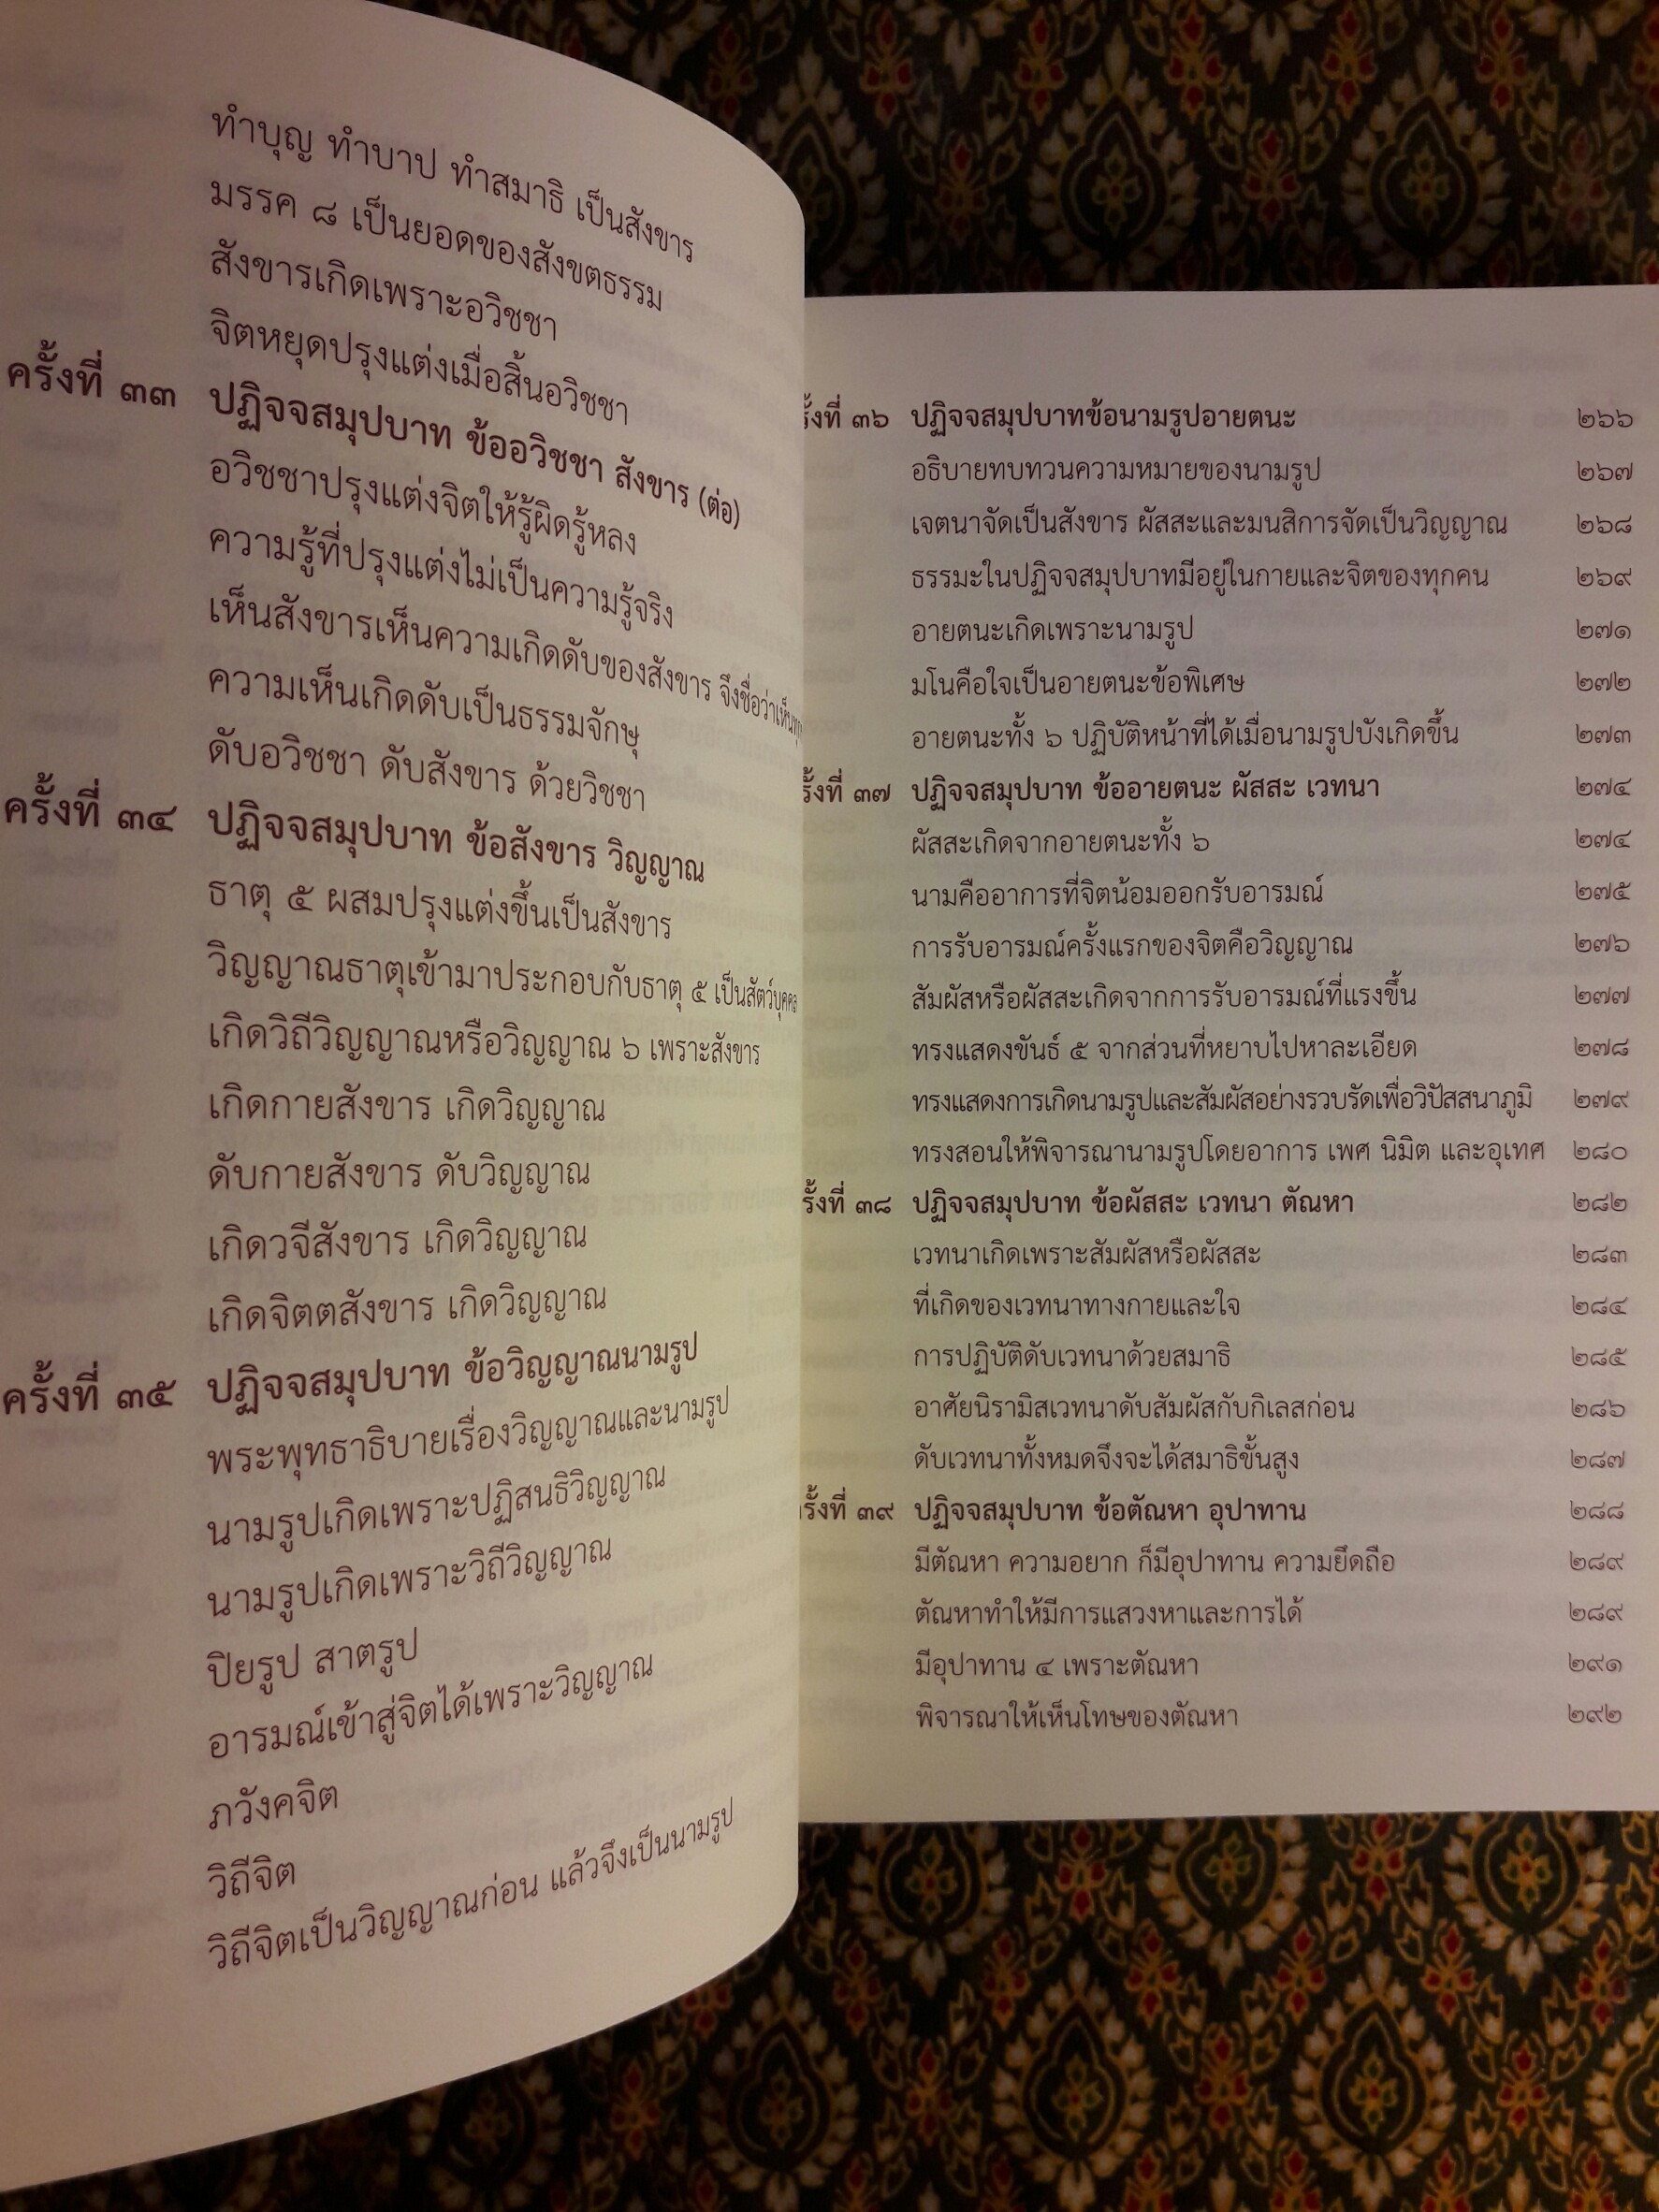 ทำบุญ ทำบาป ทำสมาธิ เป็นสังขาร
มรรค ๘ เป็นยอดของสังขตธรรม
สังขารเกิดเพราะอวิชชา
จิตหยุดปรุงแต่งเมื่อสิ้นอวิชชา
ครั้งที่ ๓๓ ปฏิจจสมุปบาท ข้ออวิชชา สังขาร (ต่อ)
อวิชชาปรุงแต่งจิตให้รู้ผิดรู้หลง
ความรู้ที่ปรุงแต่งไม่เป็นความรู้จริง
เห็นสังขารเห็นความเกิดดับของสังขาร จึงชื่อว่าเห็น
ความเห็นเกิดดับเป็นธรรมจักษุ
ดับอวิชชา ดับสังขาร ด้วยวิชชา
ครั้งที่ ๓๔ ปฏิจจสมุปบาท ข้อสังขาร วิญญาณ
ธาตุ ๕ ผสมปรุงแต่งขึ้นเป็นสังขาร
วิญญาณธาตุเข้ามาประกอบกับธาตุ ๕ เป็นสัตว์บุคคล
เกิดวิถีวิญญาณหรือวิญญาณ ๖ เพราะสังขาร
เกิดกายสังขาร เกิดวิญญาณ
ดับกายสังขาร ดับวิญญาณ
เกิดวจีสังขาร เกิดวิญญาณ
เกิดจิตตสังขาร เกิดวิญญาณ
ครั้งที่ ๓๕ ปฏิจจสมุปบาท ข้อวิญญาณนามรูป
พระพุทธาธิบายเรื่องวิญญาณและนามรูป
นามรูปเกิดเพราะปฏิสนธิวิญญาณ
นามรูปเกิดเพราะวิถีวิญญาณ
ปิยรูป สาตรูป
อารมณ์เข้าสู่จิตได้เพราะวิญญาณ
ภวังคจิต
วิถีจิต
วิถีจิตเป็นวิญญาณก่อน แล้วจึงเป็นนามรูป
รั้งที่ ๓๖ ปฏิจจสมุปบาทข้อนามรูปอายตนะ ๒๖๖
อธิบายทบทวนความหมายของนามรูป ๒๖๗
เจตนาจัดเป็นสังขาร ผัสสะและมนสิการจัดเป็นวิญญาณ ๒๖๘
ธรรมะในปฏิจจสมุปบาทมีอยู่ในกายและจิตของทุกคน ๒๖๙
อายตนะเกิดเพราะนามรูป ๒๗๑
มโนคือใจเป็นอายตนะข้อพิเศษ ๒๗๒
อายตนะทั้ง ๖ ปฏิบัติหน้าที่ได้เมื่อนามรูปบังเกิดขึ้น ๒๗๓
รั้งที่ ๓๗ ปฏิจจสมุปบาท ข้ออายตนะ ผัสสะ เวทนา ๒๗๔
ผัสสะเกิดจากอายตนะทั้ง ๖ ๒๗๔
นามคืออาการที่จิตน้อมออกรับอารมณ์ ๒๗๕
การรับอารมณ์ครั้งแรกของจิตคือวิญญาณ ๒๗๖
สัมผัสหรือผัสสะเกิดจากการรับอารมณ์ที่แรงขึ้น ๒๗๗
ทรงแสดงขันธ์ ๕ จากส่วนที่หยาบไปหาละเอียด ๒๗๘
ทรงแสดงการเกิดนามรูปและสัมผัสอย่างรวบรัดเพื่อวิปัสสนาภูมิ ๒๗๙
ทรงสอนให้พิจารณานามรูปโดยอาการ เพศ นิมิต และอุเทศ ๒๘๐
รั้งที่ ๓๘ ปฏิจจสมุปบาท ข้อผัสสะ เวทนา ตัณหา ๒๘๒
เวทนาเกิดเพราะสัมผัสหรือผัสสะ ๒๘๓
ที่เกิดของเวทนาทางกายและใจ ๒๘๔
การปฏิบัติดับเวทนาด้วยสมาธิ ๒๘๕
อาศัยนิรามิสเวทนาดับสัมผัสกับกิเลสก่อน ๒๘๖
ดับเวทนาทั้งหมดจึงจะได้สมาธิขั้นสูง ๒๘๗
รั้งที่ ๓๙ ปฏิจจสมุปบาท ข้อตัณหา อุปาทาน ๒๘๘
มีตัณหา ความอยาก ก็มีอุปาทาน ความยึดถือ ๒๘๙
ตัณหาทำให้มีการแสวงหาและการได้ ๒๘๙
มีอุปาทาน ๔ เพราะตัณหา ๒๙๑
พิจารณาให้เห็นโทษของตัณหา ๒๙๒